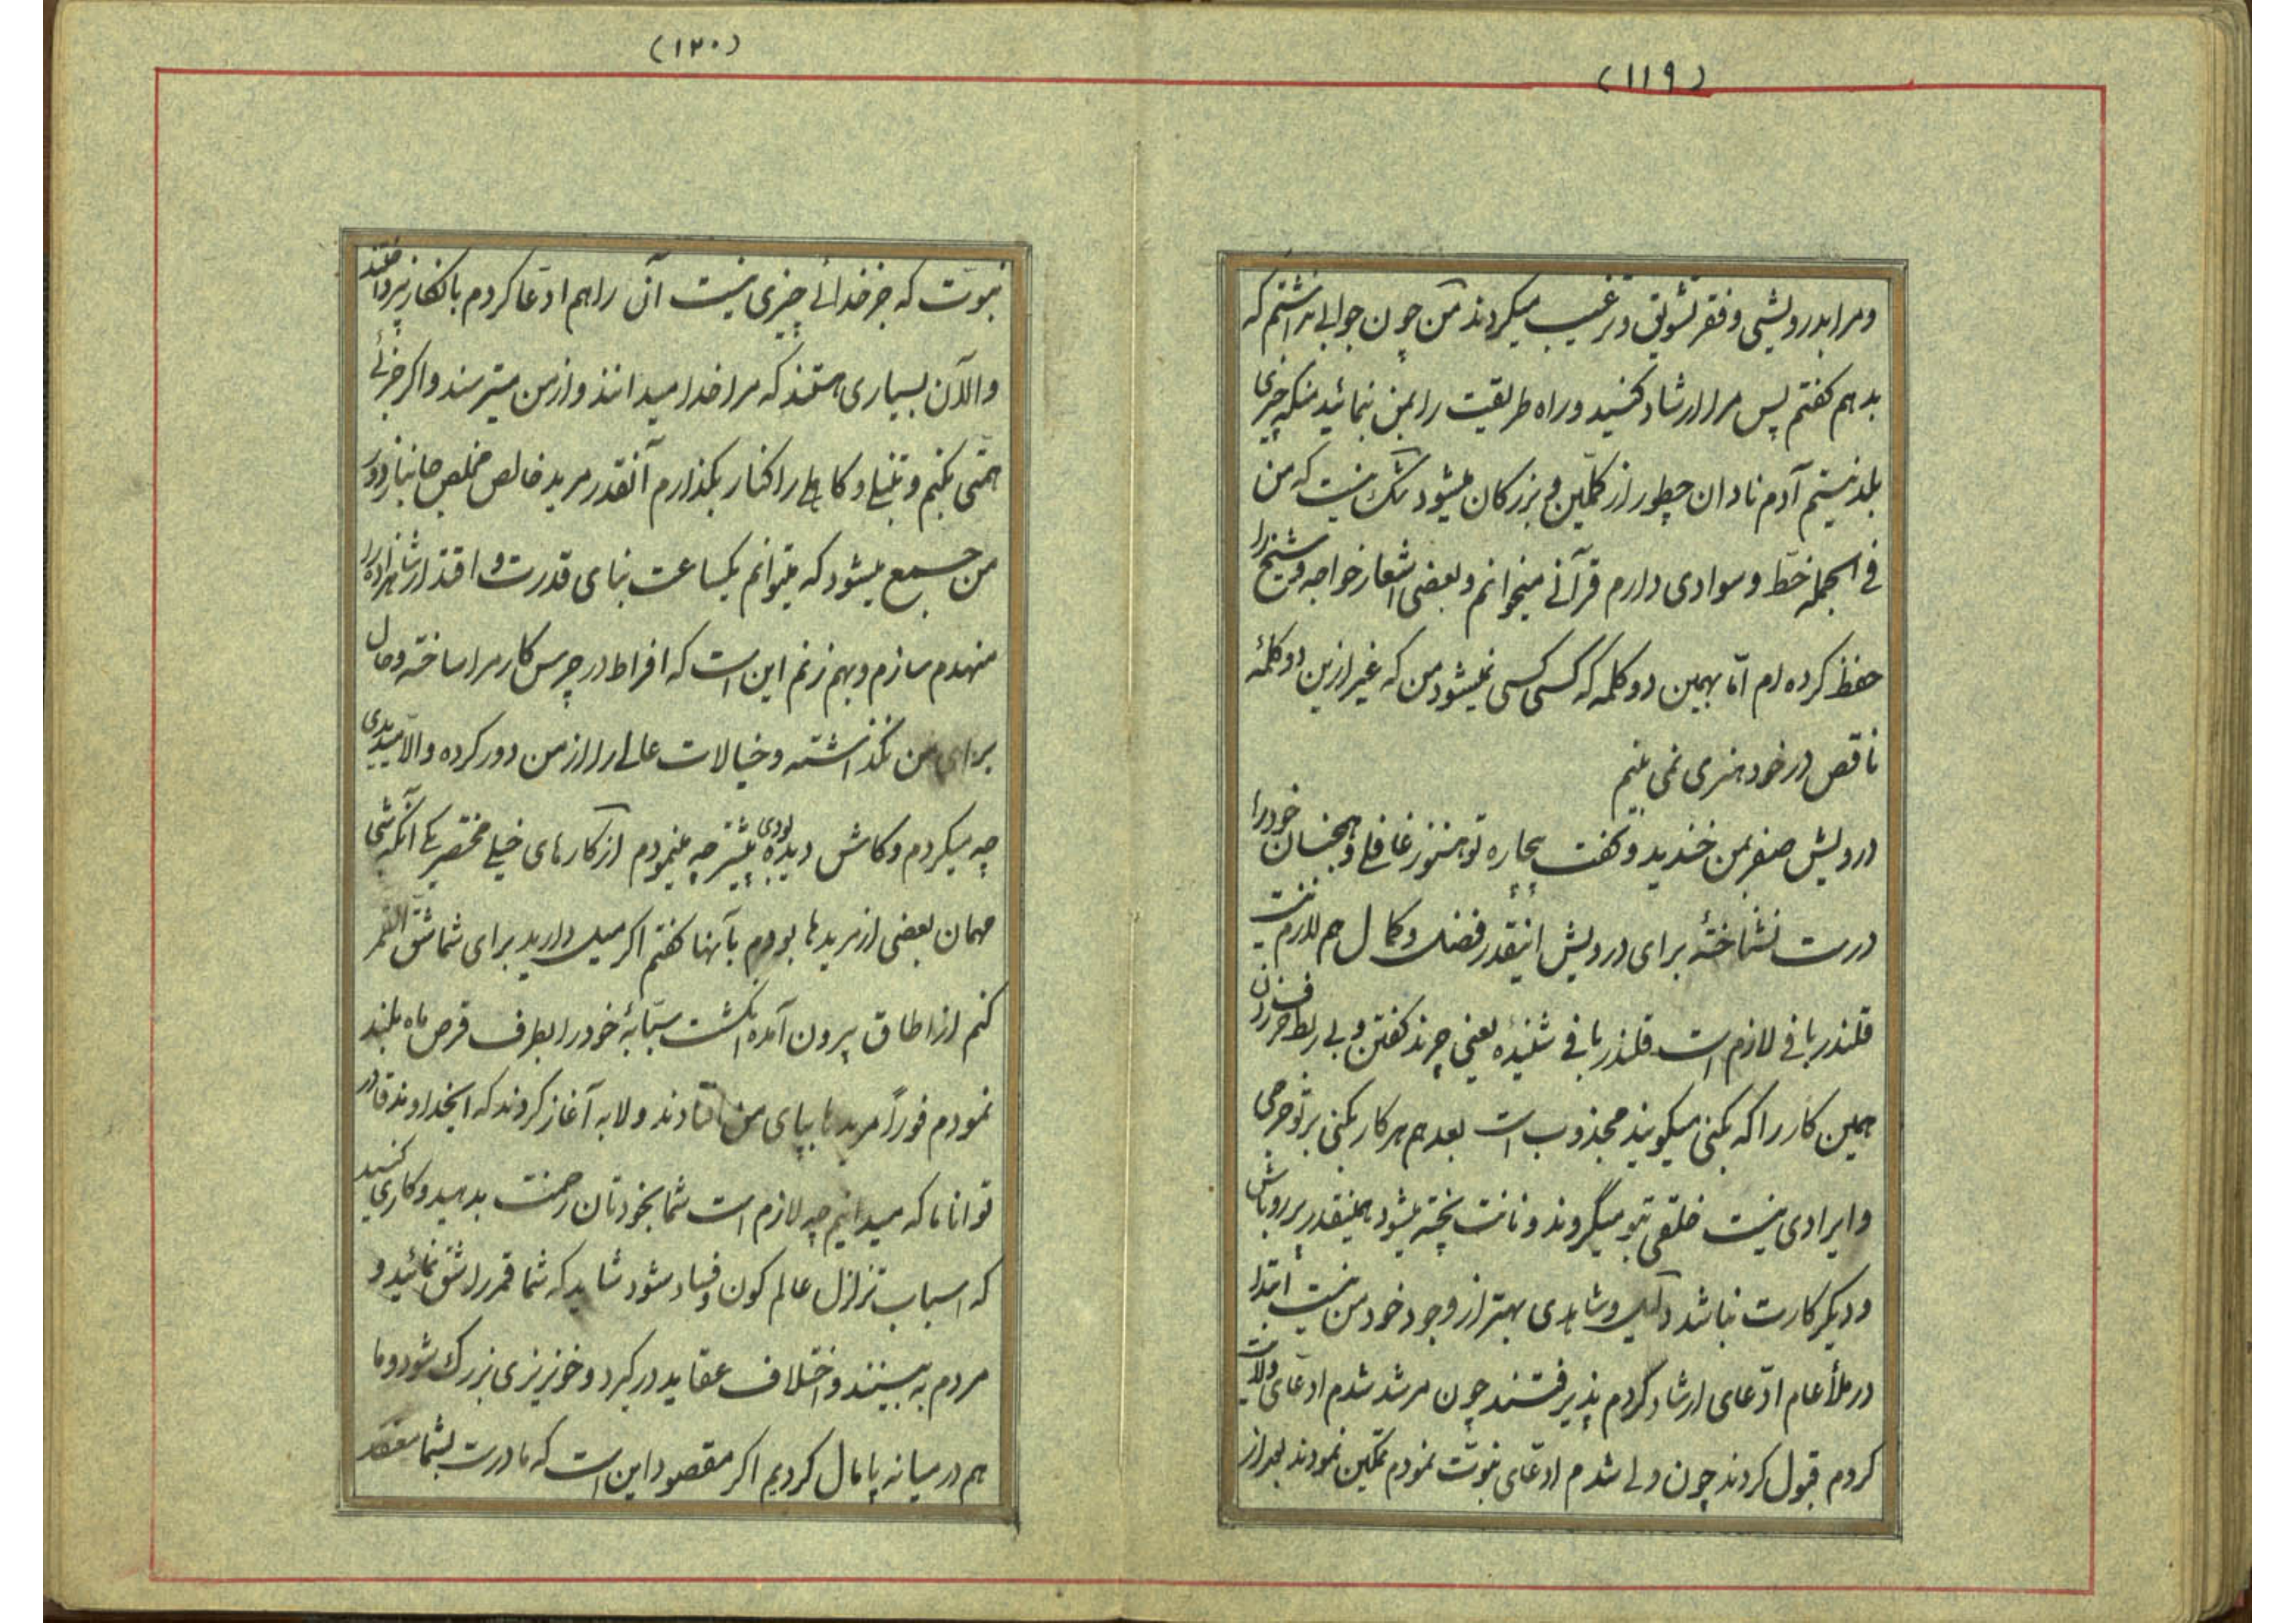 (۱۱۹)
و مرا بدرویشی و فقر تشویق و ترغیب میکردند من چون جوابی نداشتم که
بدهم گفتم پس مرا ارشاد کنید و راه طریقت را بمن بنمائید منکه چیزی
بلد نیستم آدم نادان چطور از کملین و بزرگان میشود شک نیست که من
فی الجمله خطّ و سوادی دارم قرآنی میخوانم و بعضی اشعار خواجه و شیخ را
حفظ کرده ام امّا بهمین دو کلمه که کسی کسی نمیشود من که غیر ازین دو کلمهٔ
ناقص در خود هنری نمی بینم
درویش صفر بمن خندید و گفت بیچاره تو هنوز غافلی و همجنسان خود را
درست نشناختهٔ برای درویش اینقدر فضل و کمال هم لازم نیست
قلندر بافی لازم است قلندر بافی شنیدهٔ یعنی چرند گفتن و بی ربط حرف زدن
همین کار را که بکنی میگویند مجذوب است بعد هم هر کار بکنی بر تو حرجی
و ایرادی نیست خلقی بتو میگروند و نانت پخته میشود همینقدر پر رو باش
و دیگر کارت نباشد دلیل و شاهدی بهتر از وجود خود من نیست ابتدا
در ملأ عام ادّعای ارشاد کردم پذیرفتند چون مرشد شدم ادّعای ولایت
کردم قبول کردند چون ولی شدم ادّعای نبوّت نمودم تمکین نمودند بعد از
(۱۲۰)
نبوّت که جز خدائی چیزی نیست آن را هم ادّعا کردم بانکار نپرداختند
و الآن بسیاری هستند که مرا خدا میدانند و از من میترسند و اگر جزئی
همّتی بکنم و تنبلی و کاهلی را کنار بگذارم آنقدر مرید خالص مخلص جانباز دور
من جمع میشود که میتوانم یکساعت بنای قدرت و اقتدار شاهزاده را
منهدم سازم و بهم زنم این است که افراط در چرس کار مرا ساخته و حال
برای من نگذاشته و خیالات عالی را از من دور کرده و الّا میدیدی
چه میکردم و کاش دیده بودی پیشتر چه مینمودم از کارهای خیلی مختصر یکی آنکه شبی
مهمان بعضی از مریدها بودم بآنها گفتم اگر میل دارید برای شما شقّ القمر
کنم از اطاق بیرون آمده انگشت سبّابهٔ خود را بطرف قرص ماه بلند
نمودم فوراً مریدها بپای من افتادند و لابه آغاز کردند که ایخداوند قادر
توانا ما که میدانیم چه لازم است شما بخودتان زحمت بدهید و کاری کنید
که اسباب تزلزل عالم کون و فساد شود شاید که شما قمر را شق نمائید و
مردم به بینند و اختلاف عقاید در گیرد و خونریزی بزرگ شود و ما
هم در میانه پامال گردیم اگر مقصود این است که ما درست بشما معتقد